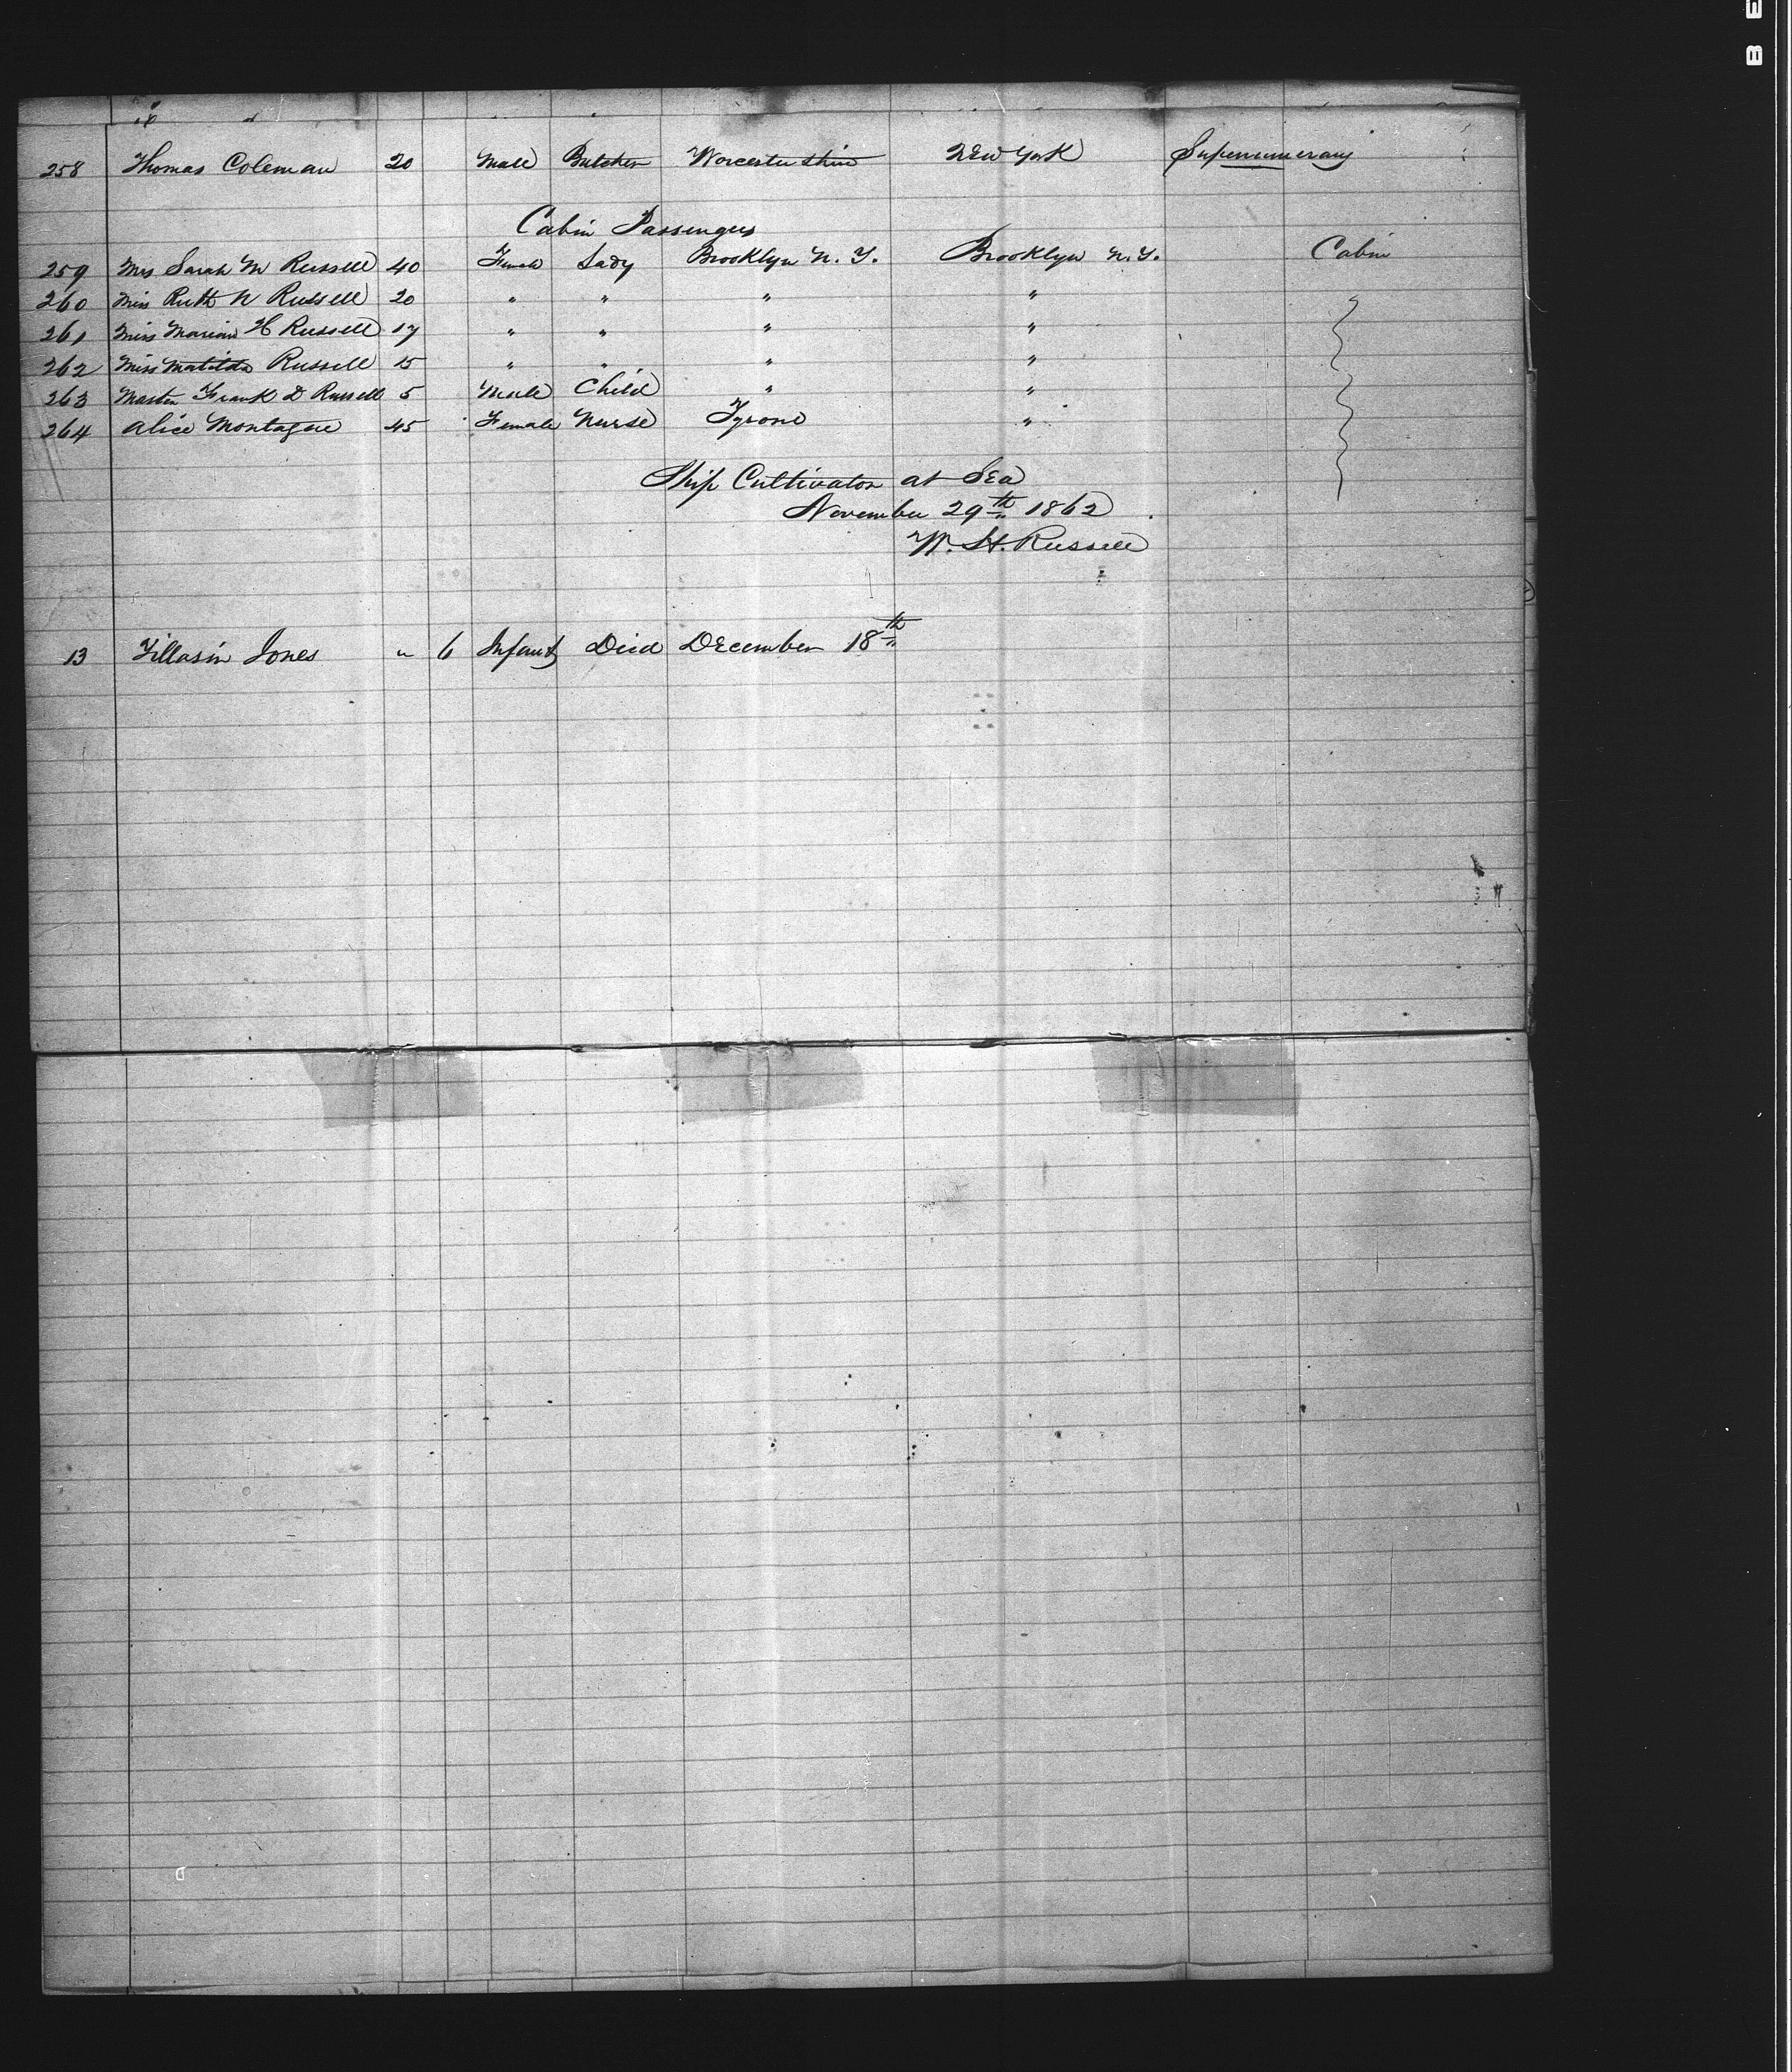 258 Thomas Coleman 20 Male Butcher Worcestershire New York Supernumerary
Cabin Passengers
259 Mrs Sarah M Russell 40 Female Lady Brooklyn N. Y. Brooklyn N. Y. Cabin
260 Miss Ruth N Russell 20 " " " "
261 Miss Marian H Russell 17 " " " "
262 Miss Matilda Russell 15 " " " "
263 Master Frank D Russell 5 Male Child " "
264 Alice Montague 45 Female Nurse Tyrone "
Ship Cultivator at Sea
November 29th 1862
W. H. Russell
13 Jones " 6 Infant Died December 18th